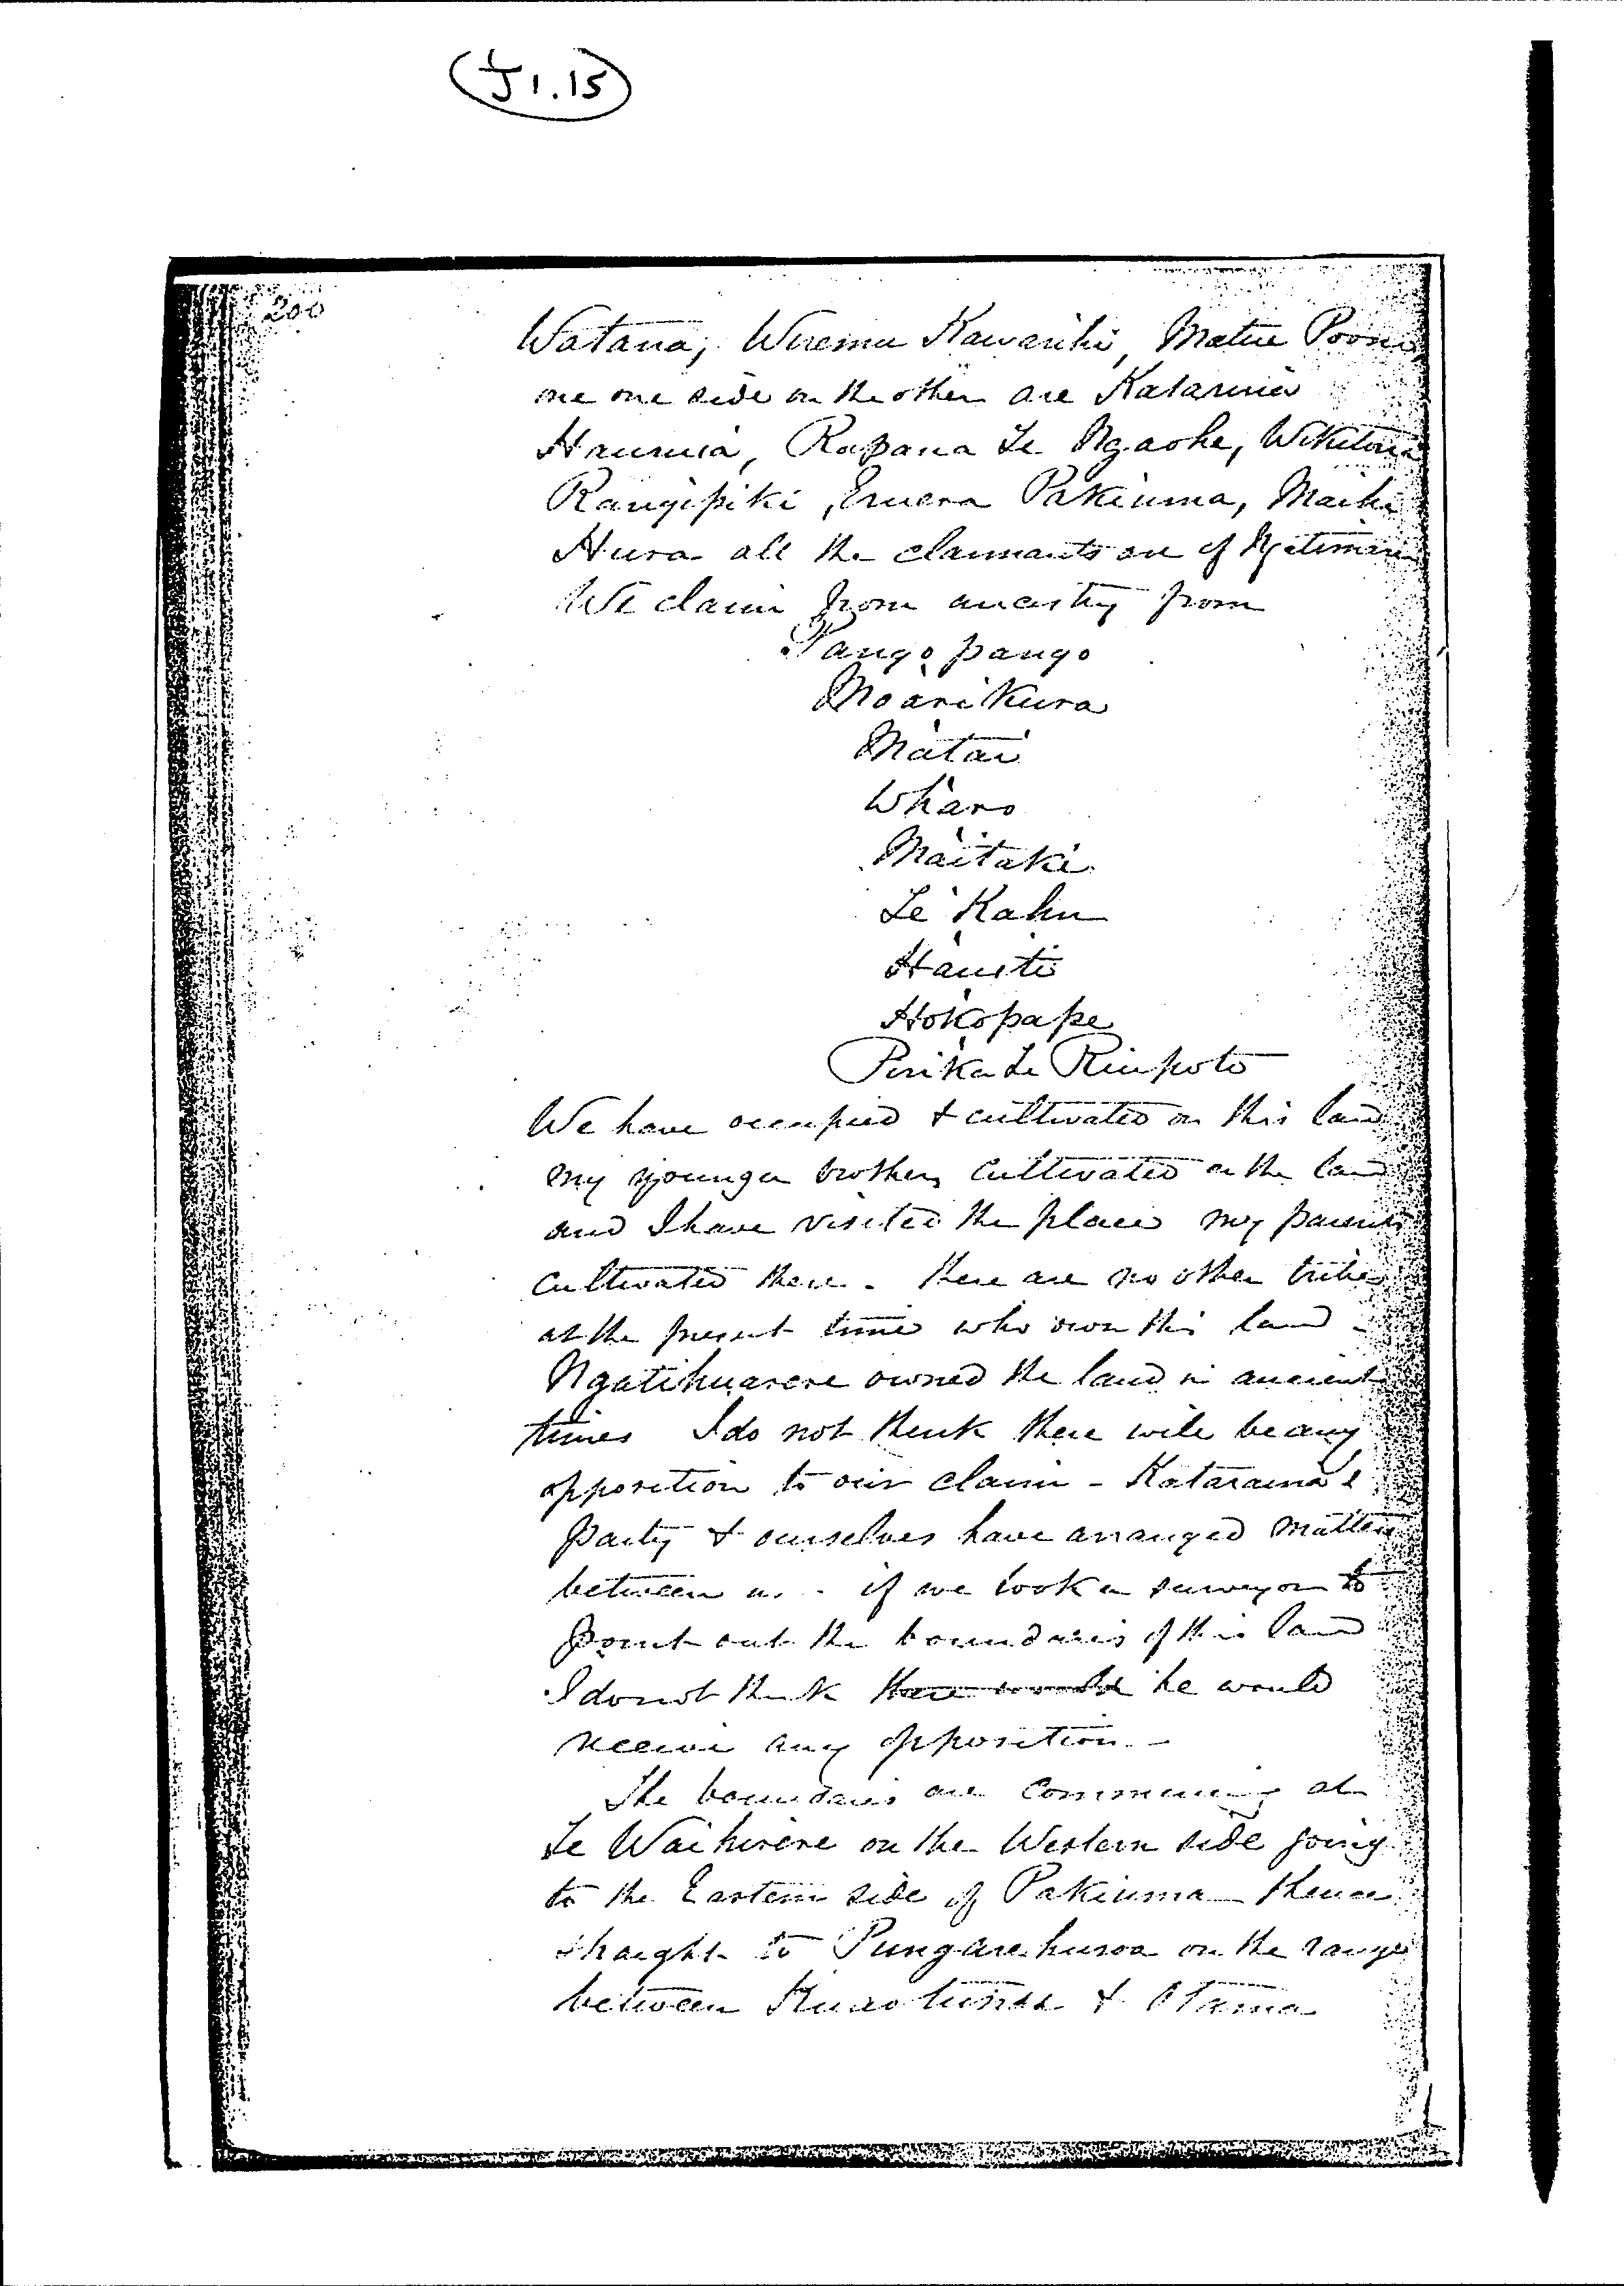 J1.15
200
Watana, Wirema Kawariki, Matiu Poono
one one side on the other are Katarina
Haunuia, Rapana Te Ngaohe, Wikitoria
Rangipiki, Eruera Pakiuma, Maihi
Hura all the claimants are of
We claim from ancestry from
Pangopango
Moarikura
Matai
Wharo
Maitaki
Te Kahu
Hauiti
Hokopape
Pirika Te Riupoto
We have occupied & cultivated on this land
my younger brothers cultivated on the land
and I have visited the place my parents
cultivated there. there are no other tribes
at the present time who own this land -
Ngatihuarere owned the land in ancient
times I do not think there will be any
opposition to our claim - Kataraina's
party & ourselves have arranged matters
between us. if we took a surveyor to
point out the boundaries of this land
I do not think there would he would
receive any opposition. -
The boundaries are commencing at
Te Waihirere on the Western side going
to the Eastern side of Pakiuma thence
straight to Pungarehuroa on the range
between Kuaotunu & Otama